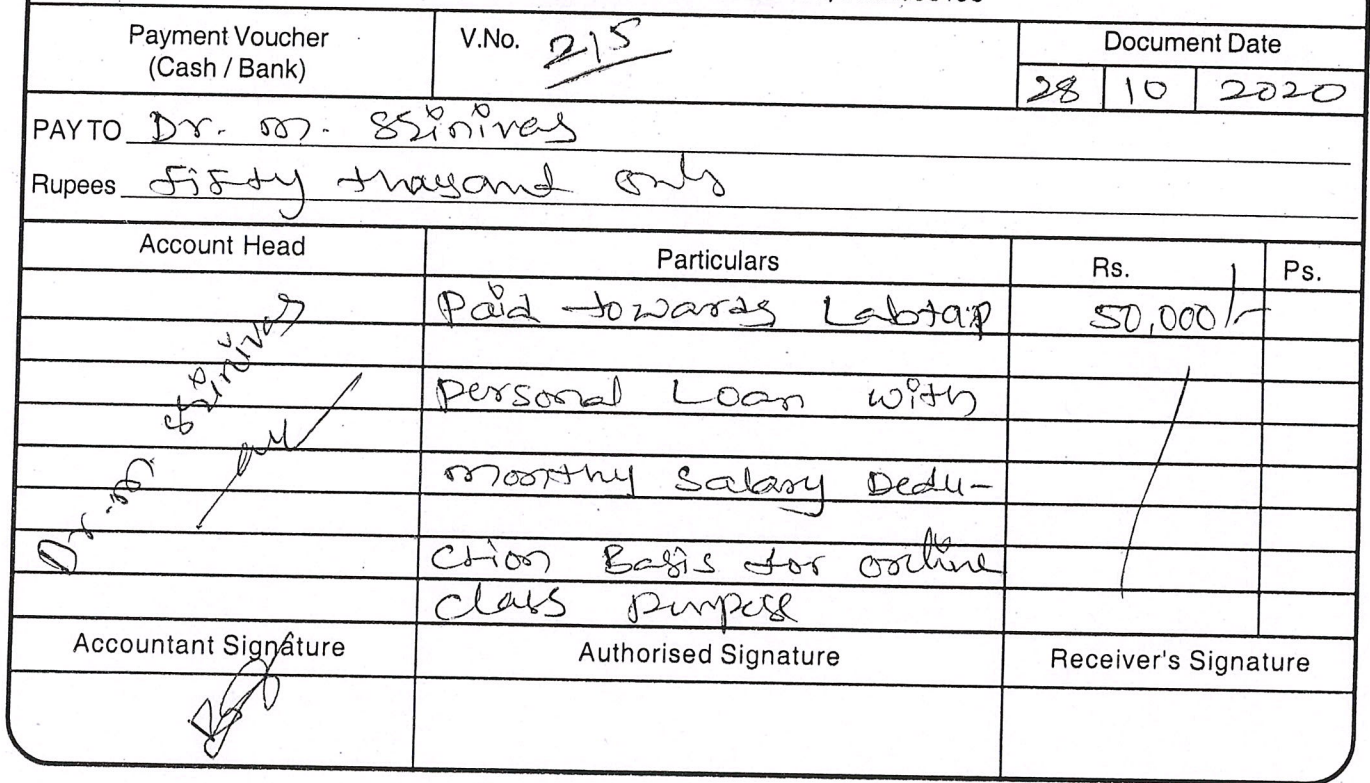 Payment Voucher
(Cash / Bank)
V.No. 215
Document Date
28 10 2020
PAY TO Dr. M. Srinivas
Rupees Fifty thousand only
Account Head
Particulars
Rs.
Ps.
Dr. M. Srinivas
Paid towards Labtap
50,000/-
personal Loan with
monthy Salary Dedu-
ction Basis for online
class purpose
Accountant Signature
Authorised Signature
Receiver's Signature